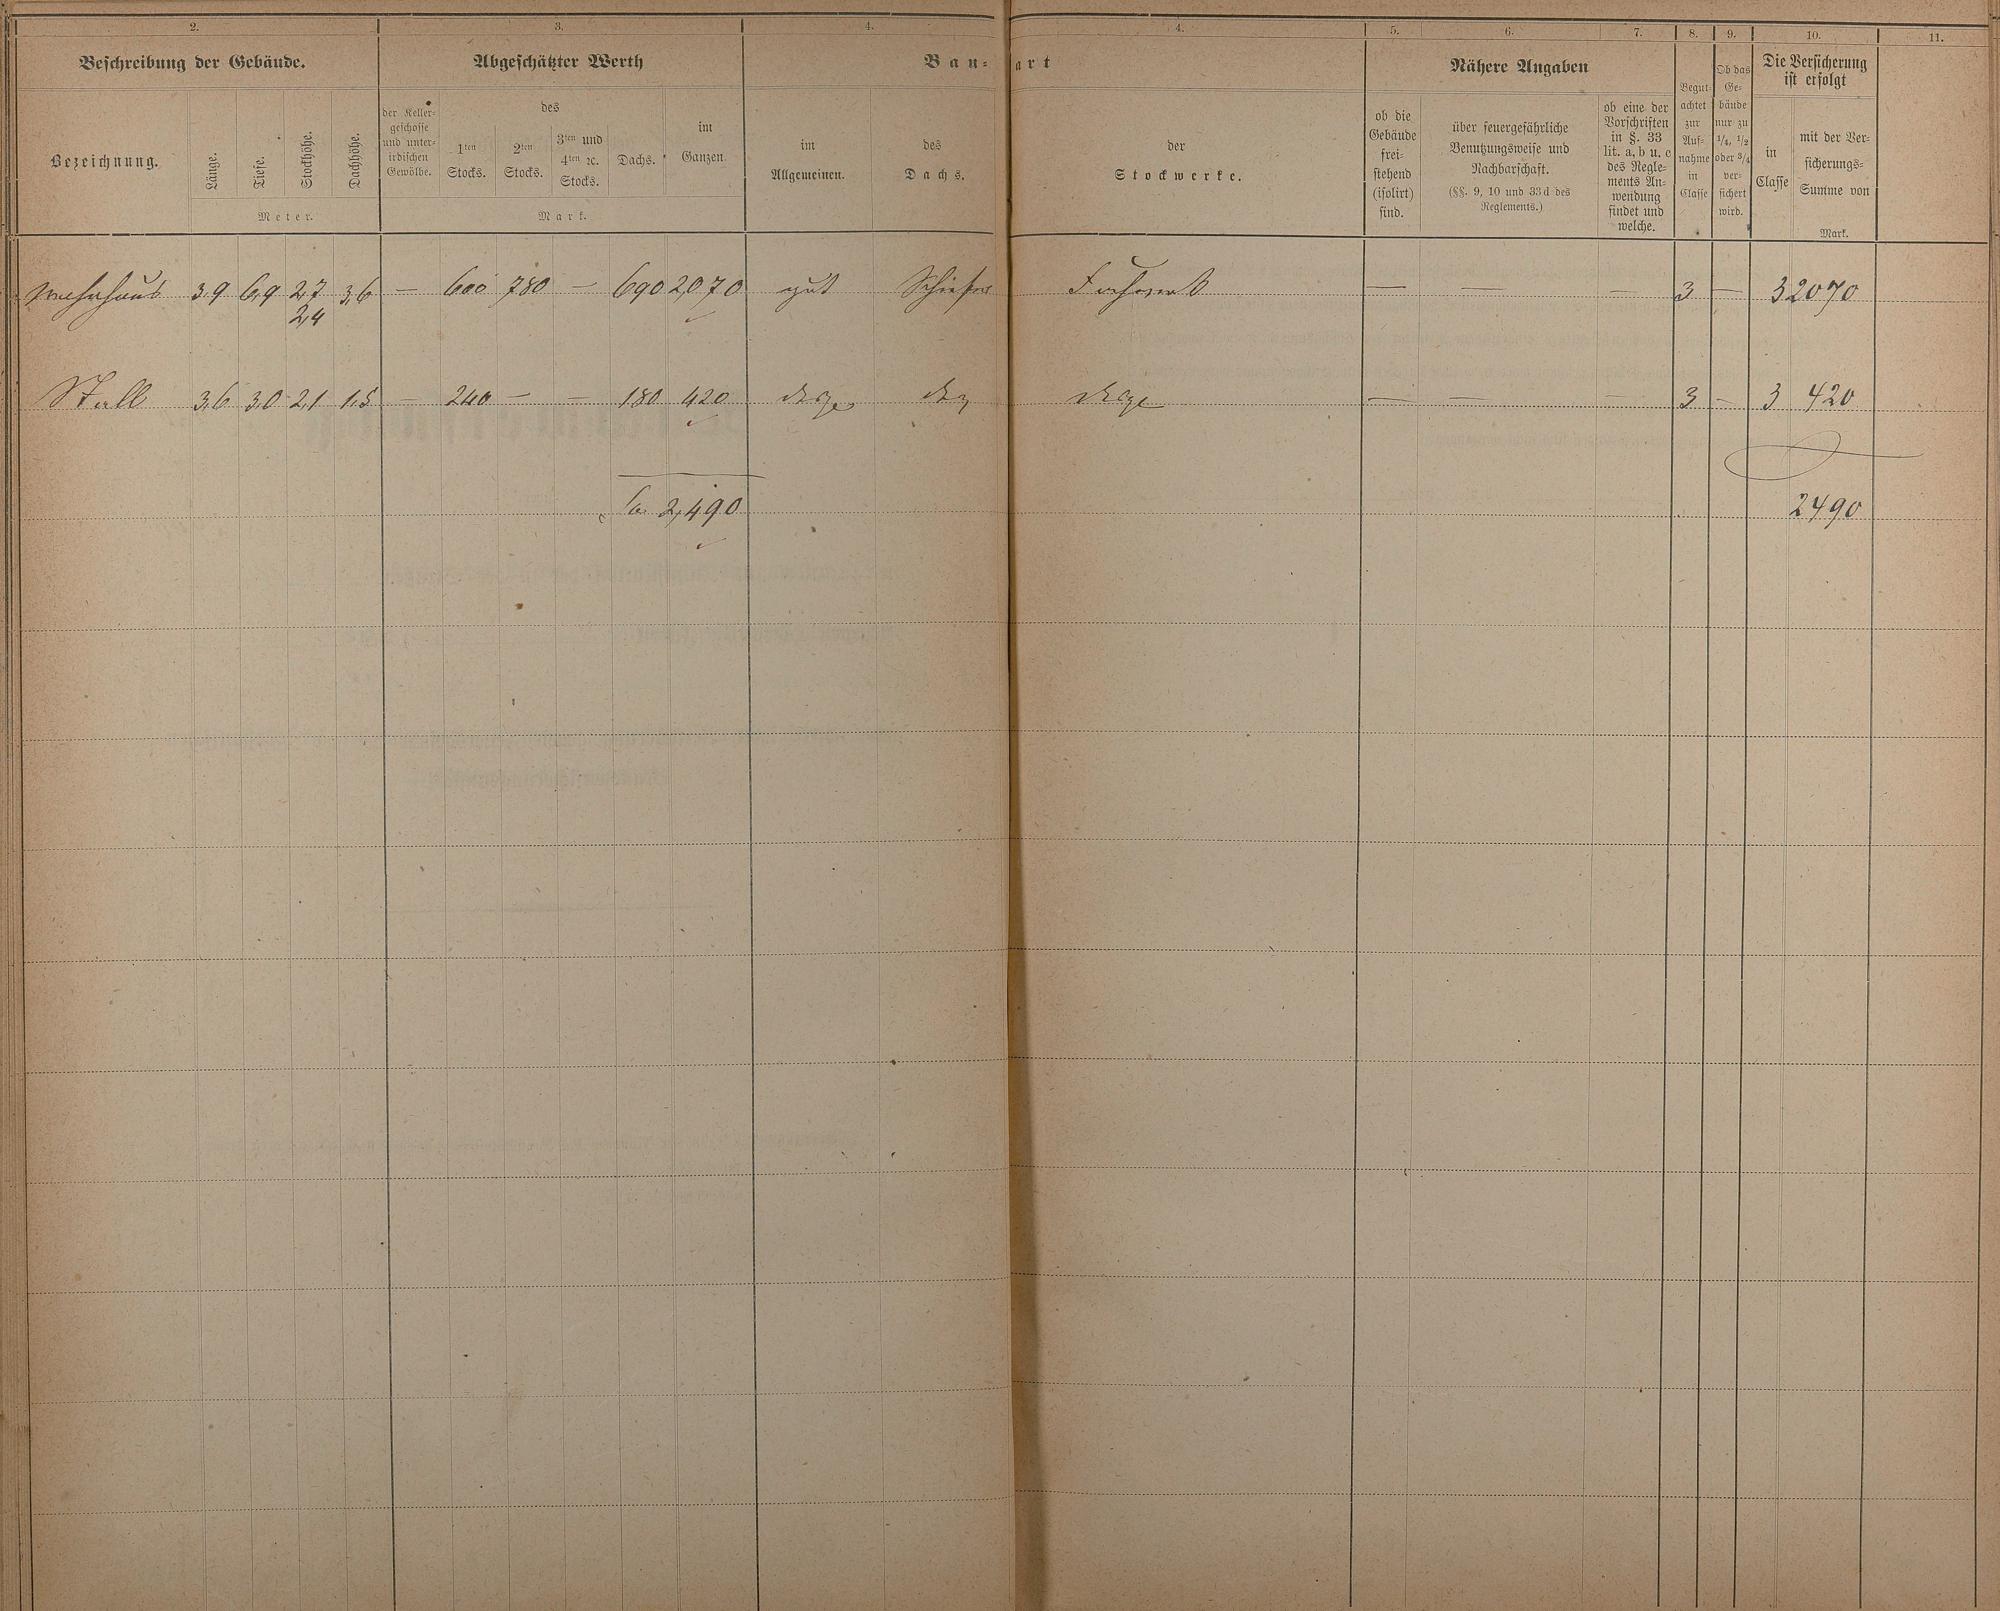 2. 3. 4. 4. 5. 6. 7. 8. 9. 10. 11.
Beschreibung der Gebäude. Abgeschätzter Werth Bau- art Nähere Angaben
Die Versicherung
ist erfolgt
Bezeichnung. Länge. Tiefe. Stockhöhe. Dachhöhe.
Meter.
der Keller-
geschosse
und unter-
irdischen
Gewölbe.
des
1ten
Stocks.
2ten
Stocks.
3ten und
4ten ꝛc.
Stocks.
Dachs.
im
Ganzen.
Mark.
im
Allgemeinen.
des
Dachs.
der
Stockwerke.
ob die
Gebäude
frei-
stehend
(isolirt)
sind.
über feuergefährliche
Benutzungsweise und
Nachbarschaft.
(§§. 9, 10 und 33d des
Reglements.)
ob eine der
Vorschriften
in §. 33
lit. a, b u. c
des Regle-
ments An-
wendung
findet und
welche.
Begut-
achtet
zur
Auf-
nahme
in
Classe
Ob das
Ge-
bäude
nur zu
1/4, 1/2
oder 3/4
ver-
sichert
wird.
in
Classe
mit der Ver-
sicherungs-
Summe von
Mark.
Wohnhaus 3,9 6,9 2,7 3,6 — 600 780 — 690 2,070 gut Schiefer Fachwerk — — — 3 — 3 2070
2,4
Stall 3,6 3,0 2,1 1,5 — 240 — — 180 420 — — — 3 — 3 420
Sa. 2,490 2490